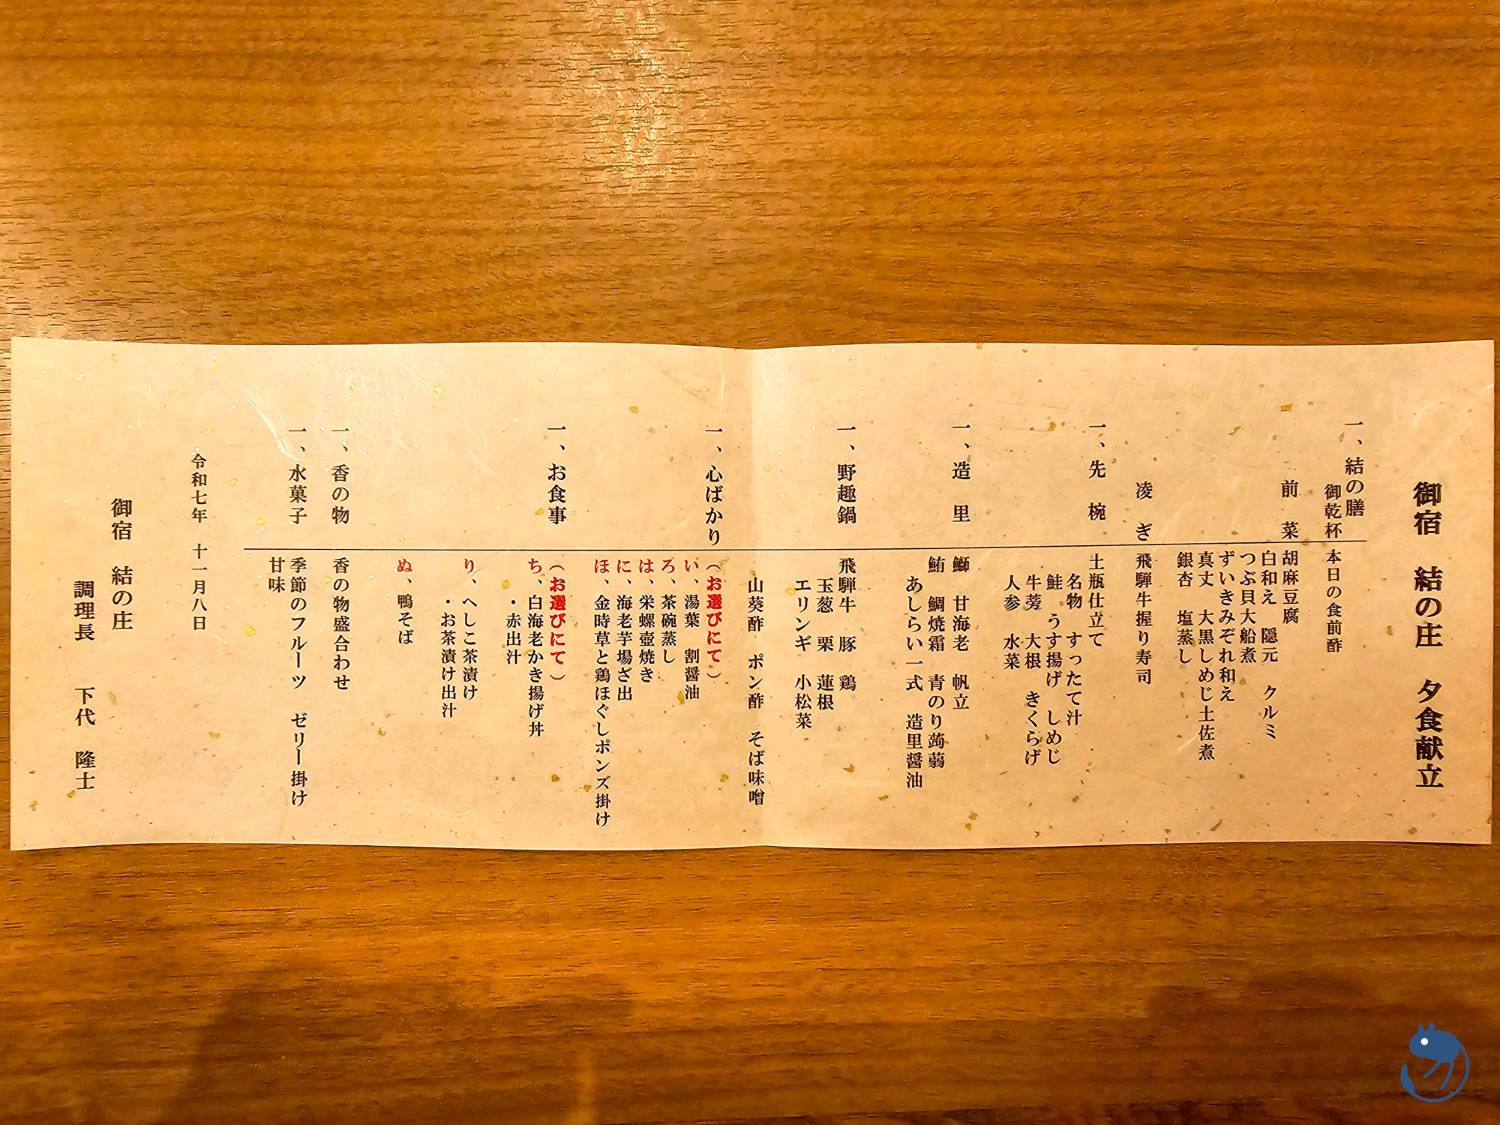 御宿 結の庄 夕食献立
一、結の膳
御乾杯 本日の食前酢
前菜 胡麻豆腐
白和え 隠元 クルミ
つぶ貝大船煮
ずいきみぞれ和え
真丈 大黒しめじ土佐煮
銀杏 塩蒸し
凌ぎ 飛騨牛握り寿司
一、先椀 土瓶仕立て
名物 すったて汁
鮭 うす揚げ しめじ
牛蒡 大根 きくらげ
人参 水菜
一、造里 鰤 甘海老 帆立
鮪 鯛焼霜 青のり蒟蒻
あしらい一式 造里醤油
一、野趣鍋 飛騨牛 豚 鶏
玉葱 栗 蓮根
エリンギ 小松菜
山葵酢 ポン酢 そば味噌
一、心ばかり (お選びにて)
い、湯葉 割醤油
ろ、茶碗蒸し
は、栄螺壺焼き
に、海老芋場ざ出
ほ、金時草と鶏ほぐしポンズ掛け
一、お食事 (お選びにて)
ち、白海老かき揚げ丼
・赤出汁
り、へしこ茶漬け
・お茶漬け出汁
ぬ、鴨そば
一、香の物 香の物盛合わせ
一、水菓子 季節のフルーツ ゼリー掛け
甘味
令和七年 十一月八日
御宿 結の庄
調理長 下代 隆士